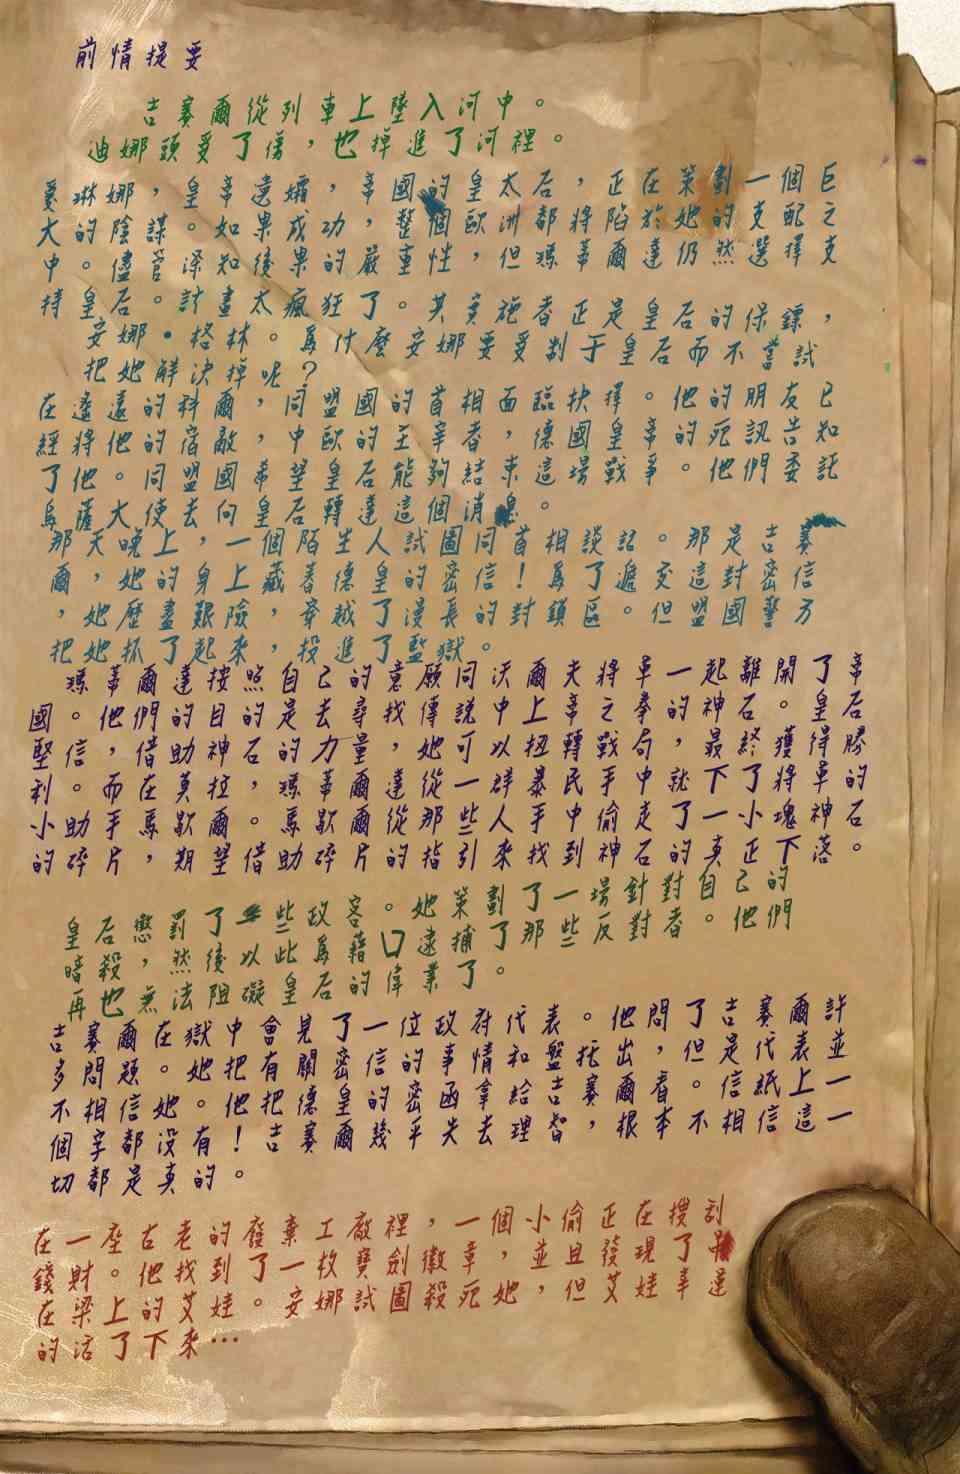 前情提要
吉賽爾從列車上墜入河中。
迪娜頭受了傷，也掉進了河裡。
愛琳娜，皇帝遺孀，帝國的皇太后，正在策劃一個巨
大的陰謀。如果成功，整個歐洲都將陷於她的支配之
中。儘管深知後果的嚴重性，但瑪蒂爾達仍然選擇支
持皇后。計畫太瘋狂了。其實施者正是皇后的保鏢，
安娜·格林。為什麼安娜要受制于皇后而不嘗試
把她解決掉呢？
在遙遠的科爾，同盟國的首相面臨抉擇。他的朋友已
經將他的宿敵，中歐的主宰者，德國皇帝的死訊告知
了他。同盟國希望皇后能夠結束這場戰爭。他們委託
烏薩大使去向皇后轉達這個消息。
那天晚上，一個陌生人試圖同首相談話。那是吉賽
爾，她的身上藏著德皇的密信！為了遞交這封密信
，她歷盡艱險，穿越了漫長的封鎖區。但盟國警方
把她抓了起來，投進了監獄。
瑪蒂爾達按照自己的意願同沃爾夫將軍一起離開了帝
國。他們的目的是去尋找傳說中上帝之拳的神石。皇后
堅信，借助神石的力量，她可以扭轉戰局，最終獲得勝
利。而在莫拉，瑪蒂爾達從一群暴民手中救下了將軍的
小助手馬歇爾。馬歇爾從那些人手中偷走了一小塊神石
的碎片，期望借助碎片的指引來找到神石的真正下落。
皇后懲罰了一些政客。她策劃了一場針對自己的
暗殺，然後以此為藉口逮捕了那些反對者。他們
再也無法阻礙皇后的偉業了。
吉賽爾在獄中會見了一位政府代表。他問了吉賽爾許
多問題。她把有關密信的事情和盤托出，但是代表並
不相信她。他把德皇的密函拿給吉賽爾看。信紙上一
個字都沒有！吉賽爾幾乎失去理智，根本不相信這一
切都是真的。
在一座古老的廢棄工廠裡，一個小偷正在搜刮
錢財。他找到了一枚寶劍徽章，並且發現了吊
在梁上的艾娃。安娜試圖殺死她，但艾娃幸運
的活了下來…